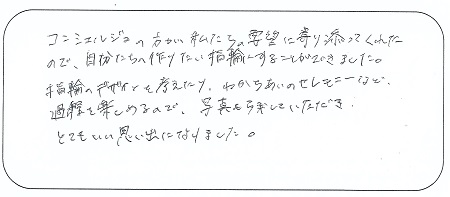 コンシェルジュの方が私たちの要望に寄り添ってくれた
ので、自分たちの作りたい指輪にすることができました。
指輪のデザインを考えたり、わかちあいのセレモニーなど、
過程を楽しめるので、写真も残していただき
とてもいい思い出になりました。